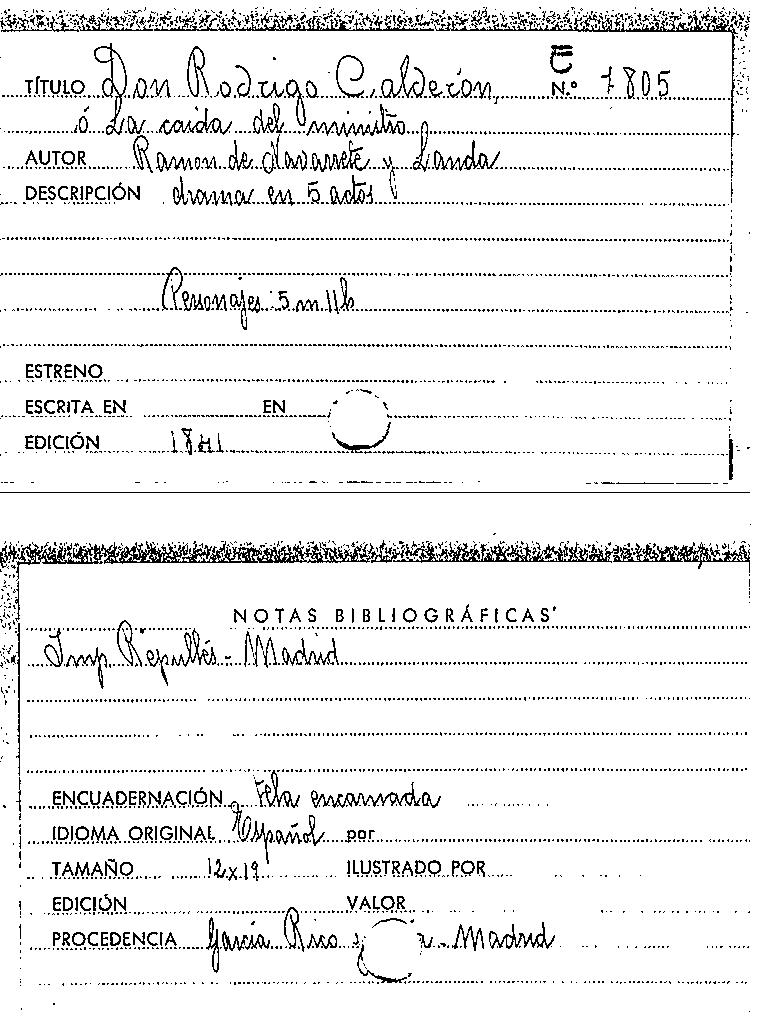 TÍTULO Don Rodrigo Calderón, N.º 7805
ó La caida del ministro
AUTOR Ramon de Navarrete y Landa
DESCRIPCIÓN drama en 5 actos
Personajes 5 m 11 h
ESTRENO
ESCRITA EN EN
EDICIÓN 1841
NOTAS BIBLIOGRÁFICAS
Imp Repullés - Madrid
ENCUADERNACIÓN tela encarnada
IDIOMA ORIGINAL Español por
TAMAÑO 12x19 ILUSTRADO POR
EDICIÓN VALOR
PROCEDENCIA García Rico y - Madrid